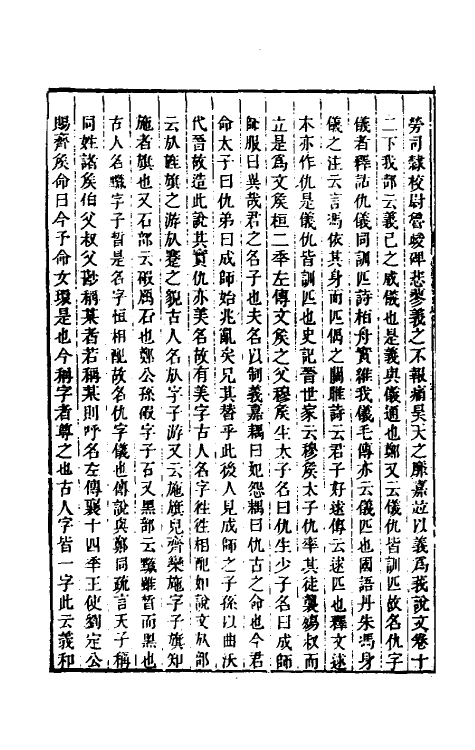 勞司隸校尉魯峻碑悲蓼義之不報痛昊天之靡嘉竝以義爲莪說文卷十
二下我部云義己之威儀也是義與儀通也鄭又云儀仇皆訓匹故名仇字
儀者釋詁仇儀同訓匹詩柏舟實維我儀毛傳亦云儀匹也國語丹朱馮身
儀之注云言馮依其身而匹偶之關雎詩云君子好逑傳云逑匹也釋文逑
本亦作仇是儀仇皆訓匹也史記晉世家云穆矦太子仇率其徒襲殤叔而
立是爲文矦桓二季左傳文矦之父穆矦生太子名曰仇生少子名曰成師
師服曰異哉君之名子也夫名以制義嘉耦曰妃怨耦曰仇古之命也今君
命太子曰仇弟曰成師始兆亂矣兄其替乎此後人見成師之子孫以曲沃
代晉故造此說其實仇亦美名故有美字古人名字往往相配如說文㫃部
云㫃旌旗之游㫃蹇之貌古人名㫃字子游又云施旗皃齊欒施字子旗知
施者旗也又石部云碬厲石也鄭公孫碬字子石又黑部云黵雖晳而黑也
古人名黵字子晳是名字恒相配故名仇字儀也傳說與鄭同疏言天子稱
同姓諸矦伯父叔父尠稱某者若稱某則呼名左傳襄十四季王使劉定公
賜齊矦命曰今予命女環是也今稱字者尊之也古人字皆一字此云義和